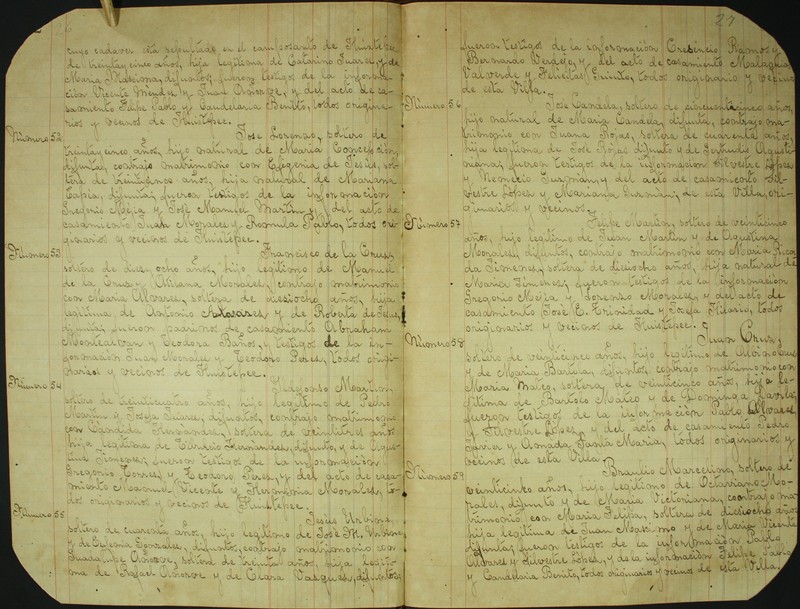 26
cuyo cadaver está sepultado en el camposanto de Huistepec
de treinta y cinco años, hija legitima de Catarino Juarez y de
Maria Maxima, difuntos, fueron testigos de la informa-
ción Vicente Mendez y Juan Orosco, y del acto de ca-
samiento Felipe Pablo y Candelaria Benito, todos origina-
rios y vecinos de Huistepec.
Número 52
José Lorenzo, soltero de
treinta y cinco años, hijo natural de Maria Concepcion,
difunta, contrajo matrimonio con Efigenia de Jesús, sol-
tera de veinticinco años, hija natural de Mariana
Tapia, difunta; fueron testigos de la informacion
Gregorio Mejia y José Manuel Martin y del acto de
casamiento Juan Morales y Romula Pablo, todos ori-
ginarios y vecinos de Huistepec.
Número 53
Francisco de la Cruz,
soltero de dies y ocho años, hijo legitimo de Manuel
de la Cruz y Morales, contrajo matrimonio
con Maria Alvares, soltera de diesiocho años, hija
legitima de Antonio Alvarez y de de Jesus,
difunta; fueron padrinos de casamiento Abraham
Montealvan y Teodora Baños, y testigos de la in-
formacion Juan Morales y Teodoro Peres, todos origi-
narios y vecinos de Huistepec.
Número 54
Martin,
soltero de veinticuatro años, hijo legitimo de Pedro
Martin y Josefa Juarez, difuntos, contrajo matrimonio
con Candida Hernandez, soltera de veintitres años
hija legitima de Hernandez, difunto, y de Agus-
tina Jimenes, fueron testigos de la informacion
Gregorio Torres y Teodoro Peres, y del acto de casa-
miento Manuel Vicente y Herminia Morales, to-
dos originarios y vecinos de Huistepec.
Número 55
Jesus Urbano,
soltero de cuarenta años, hijo legitimo de José M. Urbano
y de Efigenia Gonzales, difuntos, contrajo matrimonio con
Guadalupe Orosco, soltera de treinta años, hija legiti-
ma de Rafael Orosco y de Clara Vasquez, difuntos,
27
fueron testigos de la informacion Cresencio Ramos y
Bernardo Vargas, y del acto de casamiento
Valverde y Felicitas Quinto, todos originario y vecino
de esta Villa.
Número 56
José Candela, soltero de cincuenta y cinco años,
hijo natural de Maria Candela, difunta, contrajo ma-
trimonio con Juana Rojas, soltera de cuarenta años,
hija legitima de José Rojas difunto y de Gertrudis Agusti-
niana; fueron testigos de la informacion Silvestre Lopez
y Nemecio Guzman, y del acto de casamiento Sil-
vestre Lopez y Mariana Guzman, de esta Villa, ori-
ginarios y vecinos.
Número 57
Felipe Martin, soltero de veinticinco
años, hijo legitimo de Juan Martin y de Agustina
Morales, difuntos, contrajo matrimonio con Maria
Jimenes, soltera de diesiocho años, hija natural de
Maria Jimenes; fueron testigos de la informacion
Gregorio Mejia y Lorenzo Morales, y del acto de
casamiento José E. Trinidad y Josefa Hilario, todos
originarios y vecinos de Huistepec.
Número 58
Juan Cruz,
soltero de veinticinco años, hijo legitimo de
y de Maria Barbara, difuntos, contrajo matrimonio con
Maria Mateo, soltera de veinticinco años, hija le-
gitima de Bartolo Mateo y de Dominga Garcia,
fueron testigos de la informacion Pablo Alvares
y Silvestre Lopez, y del acto de casamiento Pedro
Javier y Amada Santa Maria, todos originarios y
vecinos de esta Villa.
Número 59
Braulio Marcelino, soltero de
veinticinco años, hijo legitimo de Octaviano Mo-
rales, difunto y de Maria Victoriana, contrajo ma-
trimonio con Maria Felipa, soltera de diesiocho años,
hija legitima de Juan Maximo y de Maria Vicenta,
difunta, fueron testigos de la informacion Pablo
Alvares y Silvestre Lopez, y de la informacion Felipe Pablo
y Candelaria Benito, todos originarios y vecinos de esta Villa.